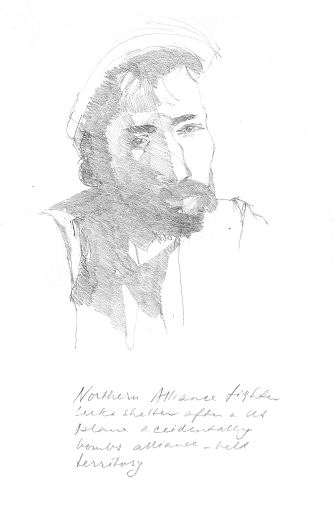 Northern Alliance fighter
seeks shelter after a US
plane accidentally
bombs alliance-held
territory